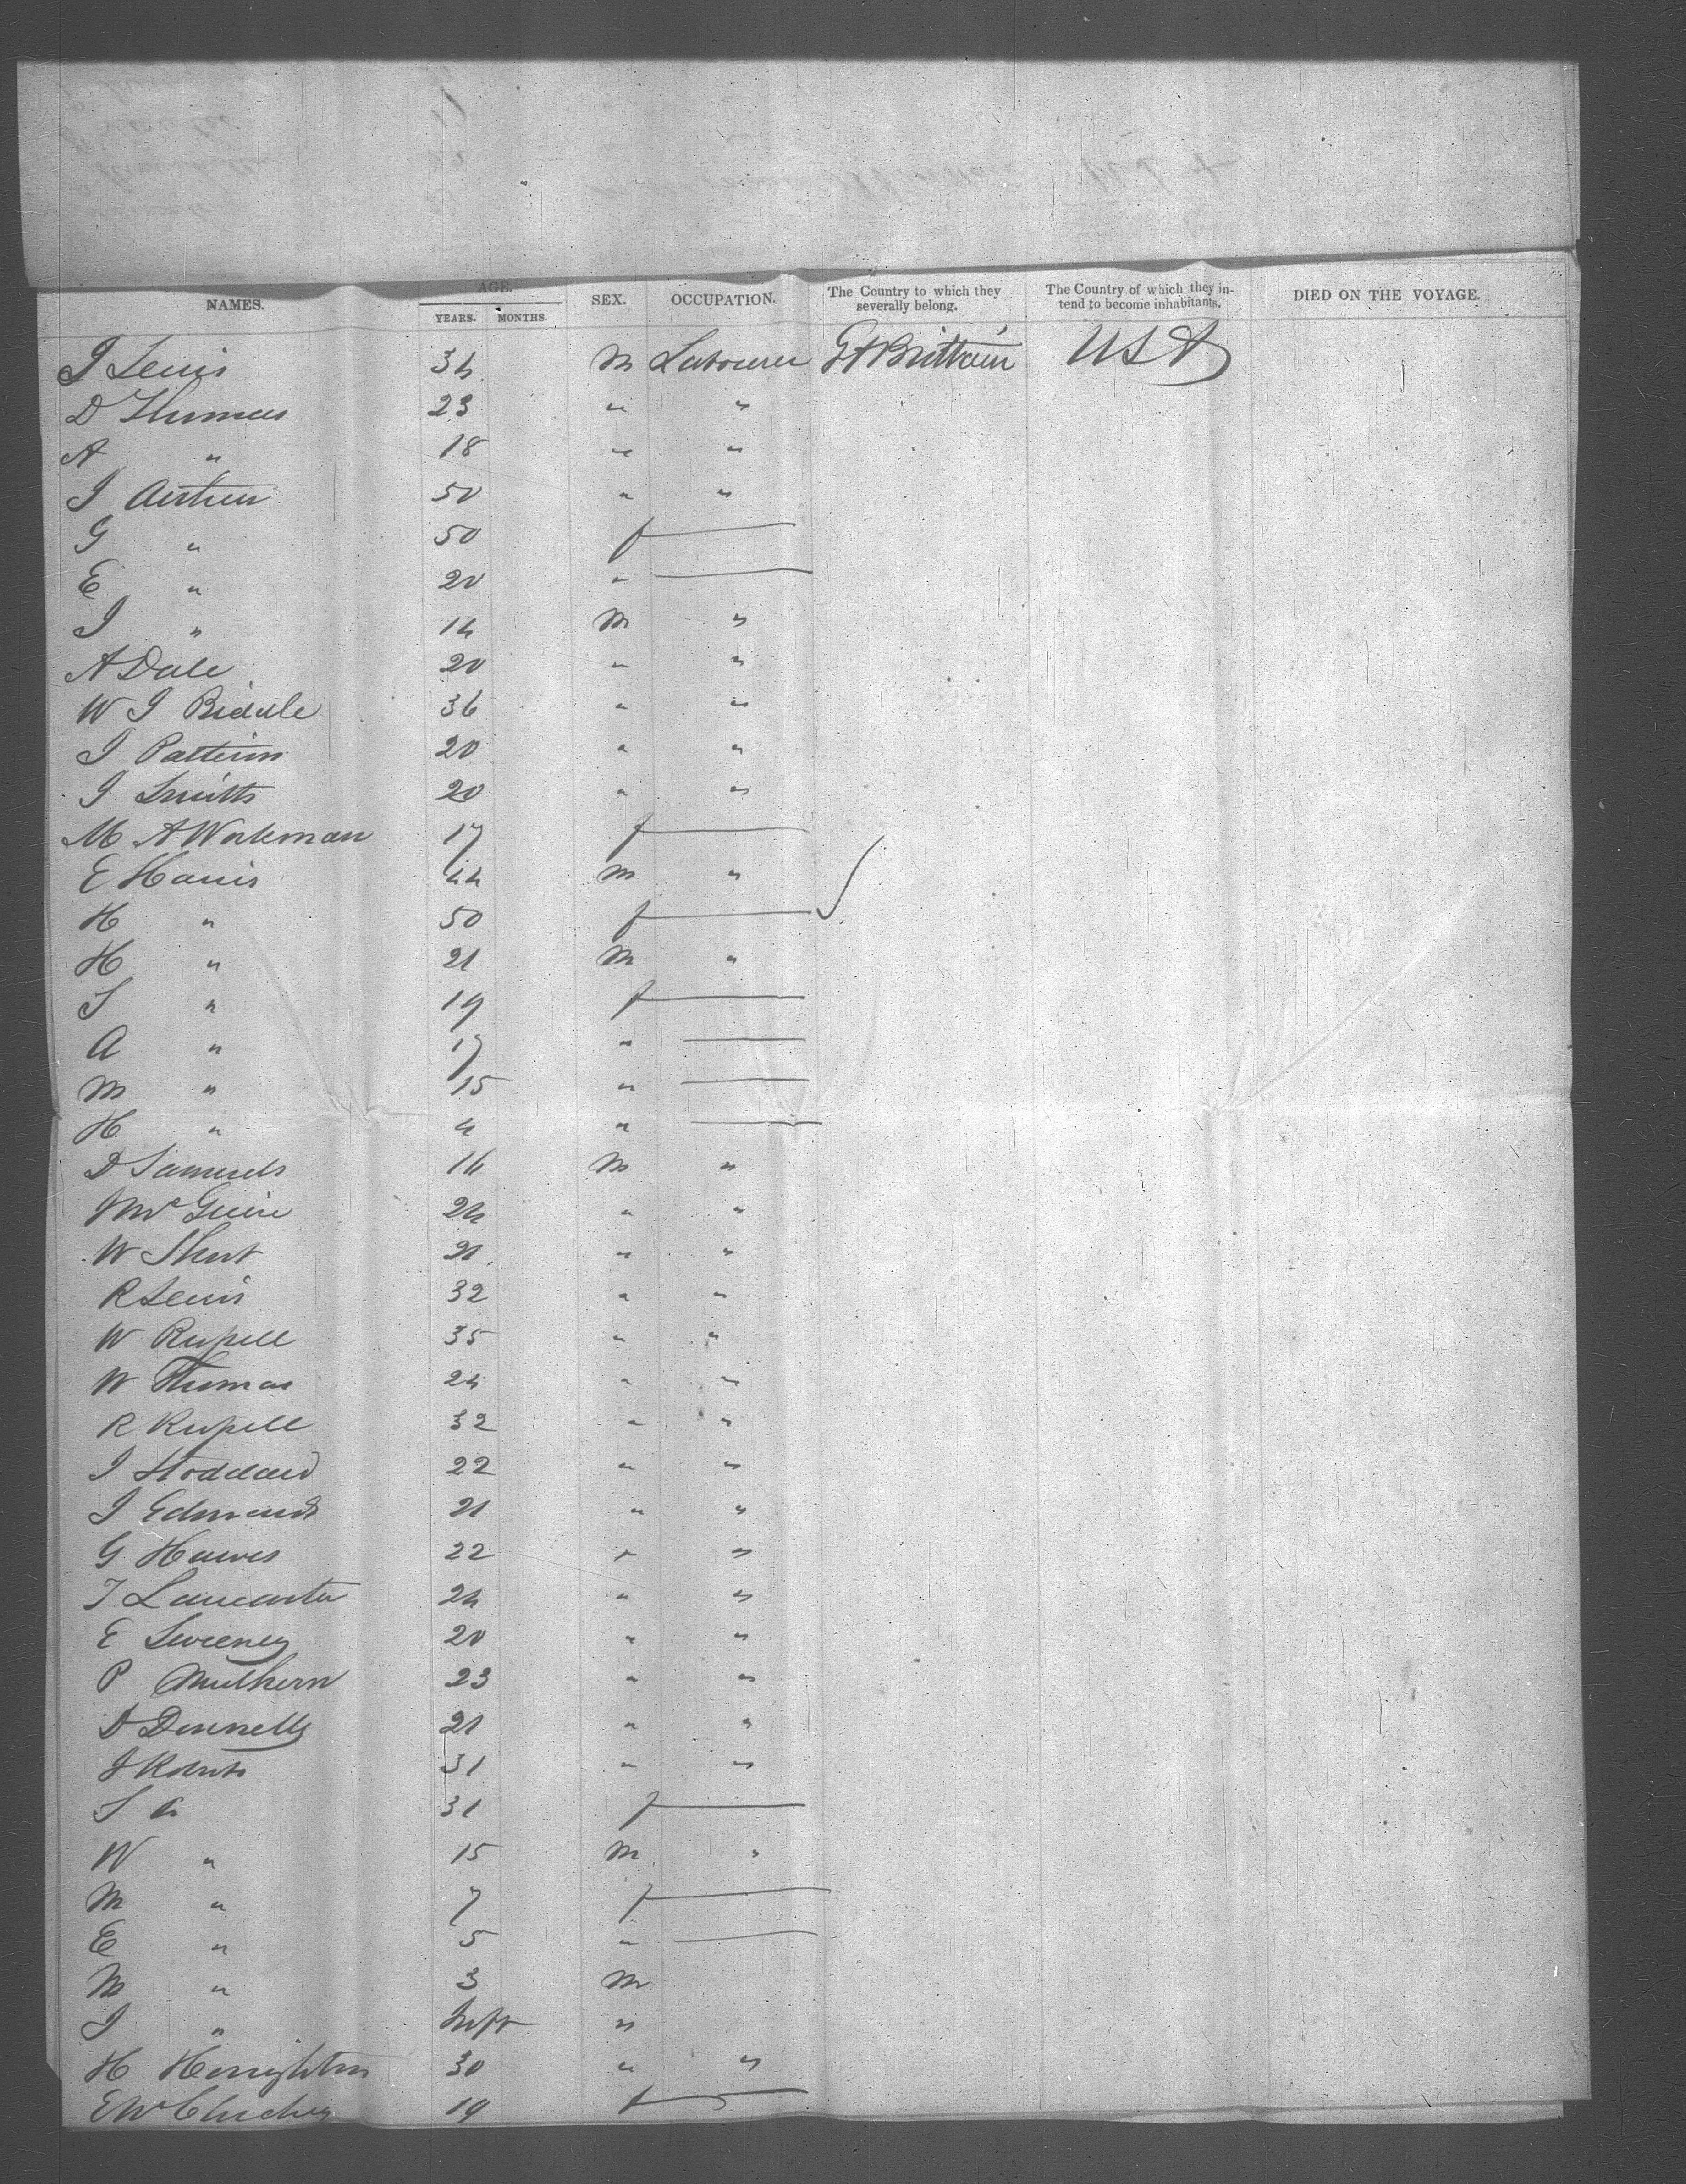 NAMES. AGE. YEARS. MONTHS. SEX. OCCUPATION. The Country to which they severally belong. The Country of which they intend to become inhabitants. DIED ON THE VOYAGE.
J Lewis 34 M Labourer Gt Brittain USA
D Thomas 23 " "
A " 18 " "
J Arthur 50 " "
G " 50 f —
E " 20 " —
J " 14 M "
A Dale 20 " "
W J Biddle 36 " "
J Patterson 20 " "
J Smith 20 " "
M A Workman 17 f —
E Harris 44 M "
H " 50 f —
H " 21 M "
S " 19 f —
A " 17 " —
M " 15 " —
H " 4 " —
D Samuels 16 M "
J McGuire 24 " "
W Short 21 " "
R Lewis 32 " "
W Russell 35 " "
W Thomas 24 " "
R Russell 32 " "
J Stoddard 22 " "
J Edmunds 21 " "
G Hawes 22 " "
T Lancaster 24 " "
E Sweeney 20 " "
P Mulhern 23 " "
D Donnelly 21 " "
J Roberts 31 " "
S " 31 f —
W " 15 M "
M " 7 f —
E " 5 " —
M " 3 M
J " Inft "
H Houghton 30 " "
E 19 f —